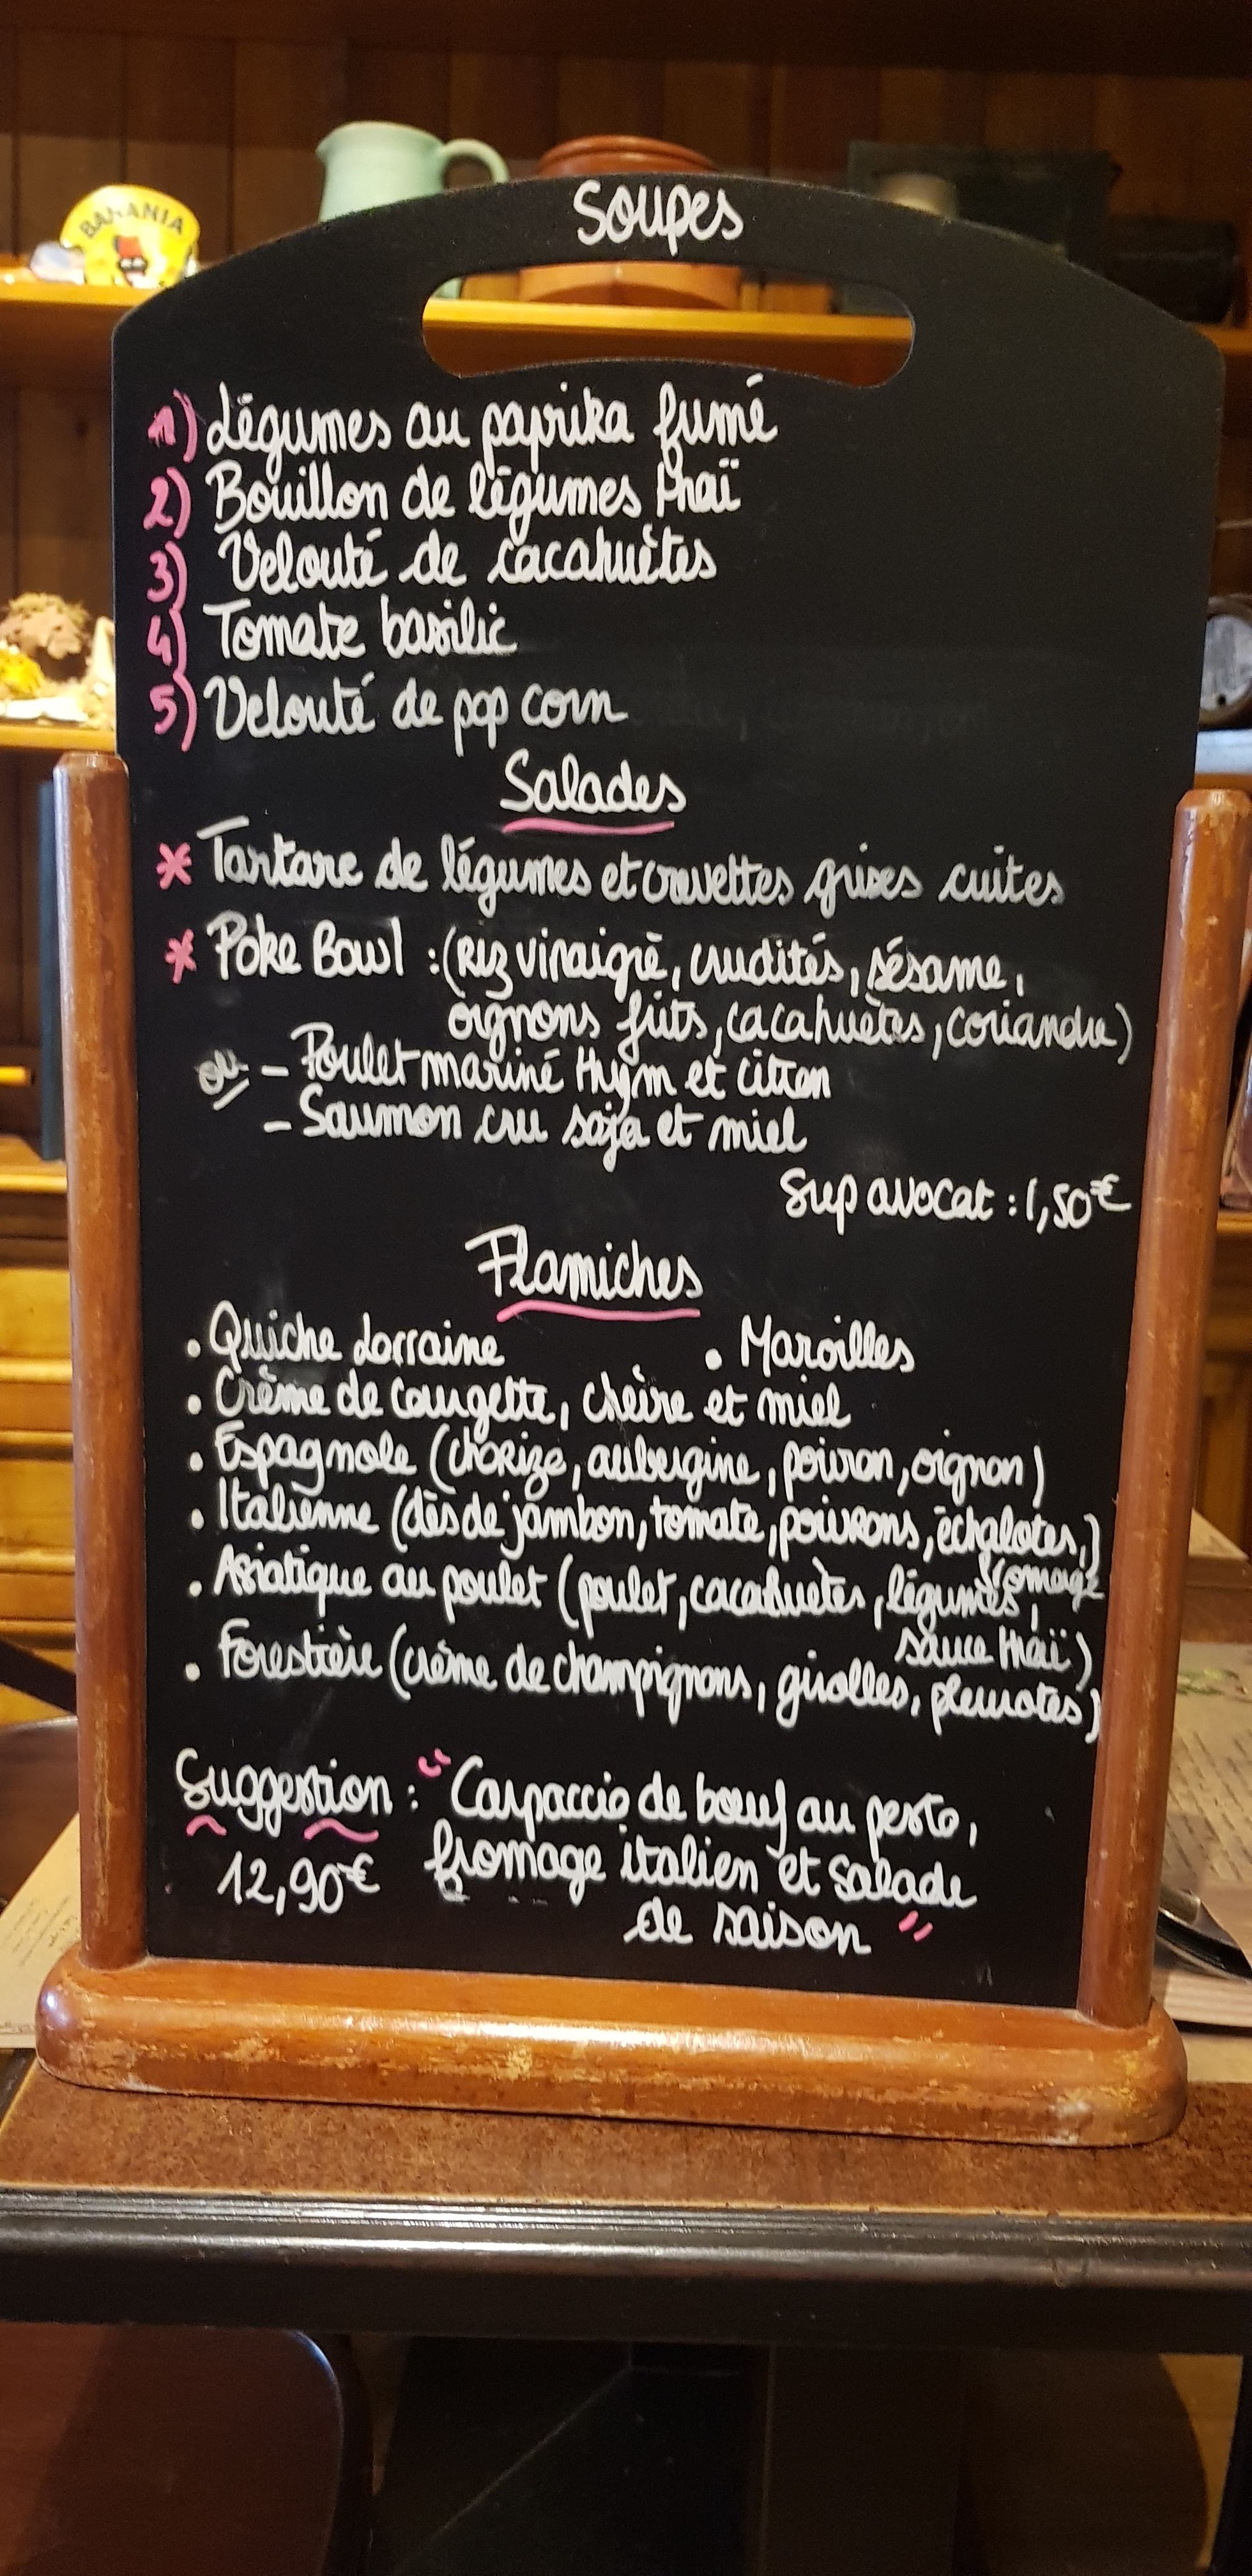 BANANIA
Soupes
1) Légumes au paprika fumé
2) Bouillon de légumes thaï
3) Velouté de cacahuètes
4) Tomate basilic
5) Velouté de pop corn
Salades
* Tartare de légumes et crevettes grises cuites
* Poke Bowl : (Riz vinaigré, crudités, sésame,
oignons frits, cacahuètes, coriandre)
ou - Poulet mariné thym et citron
- Saumon cru soja et miel
Sup avocat : 1,50€
Flamiches
• Quiche Lorraine • Maroilles
• Crème de courgette, chèvre et miel
• Espagnole (chorizo, aubergine, poivron, oignon)
• Italienne (dès de jambon, tomate, poivrons, échalotes,)
fromage
• Asiatique au poulet (poulet, cacahuètes, légumes,
sauce thaï)
• Forestière (crème de champignons, girolles, pleurotes)
Suggestion : "Carpaccio de bœuf au pesto,
12,90€ fromage italien et salade
de saison"